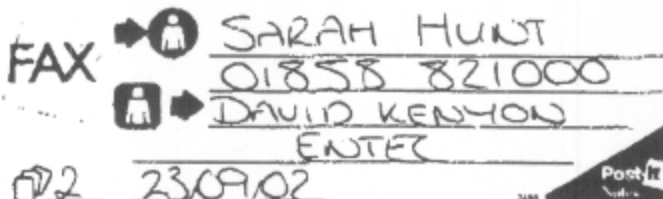 FAX
SARAH HUNT
01858 821000
DAVID KENYON
ENTEC
2 23/09/02
Post-it